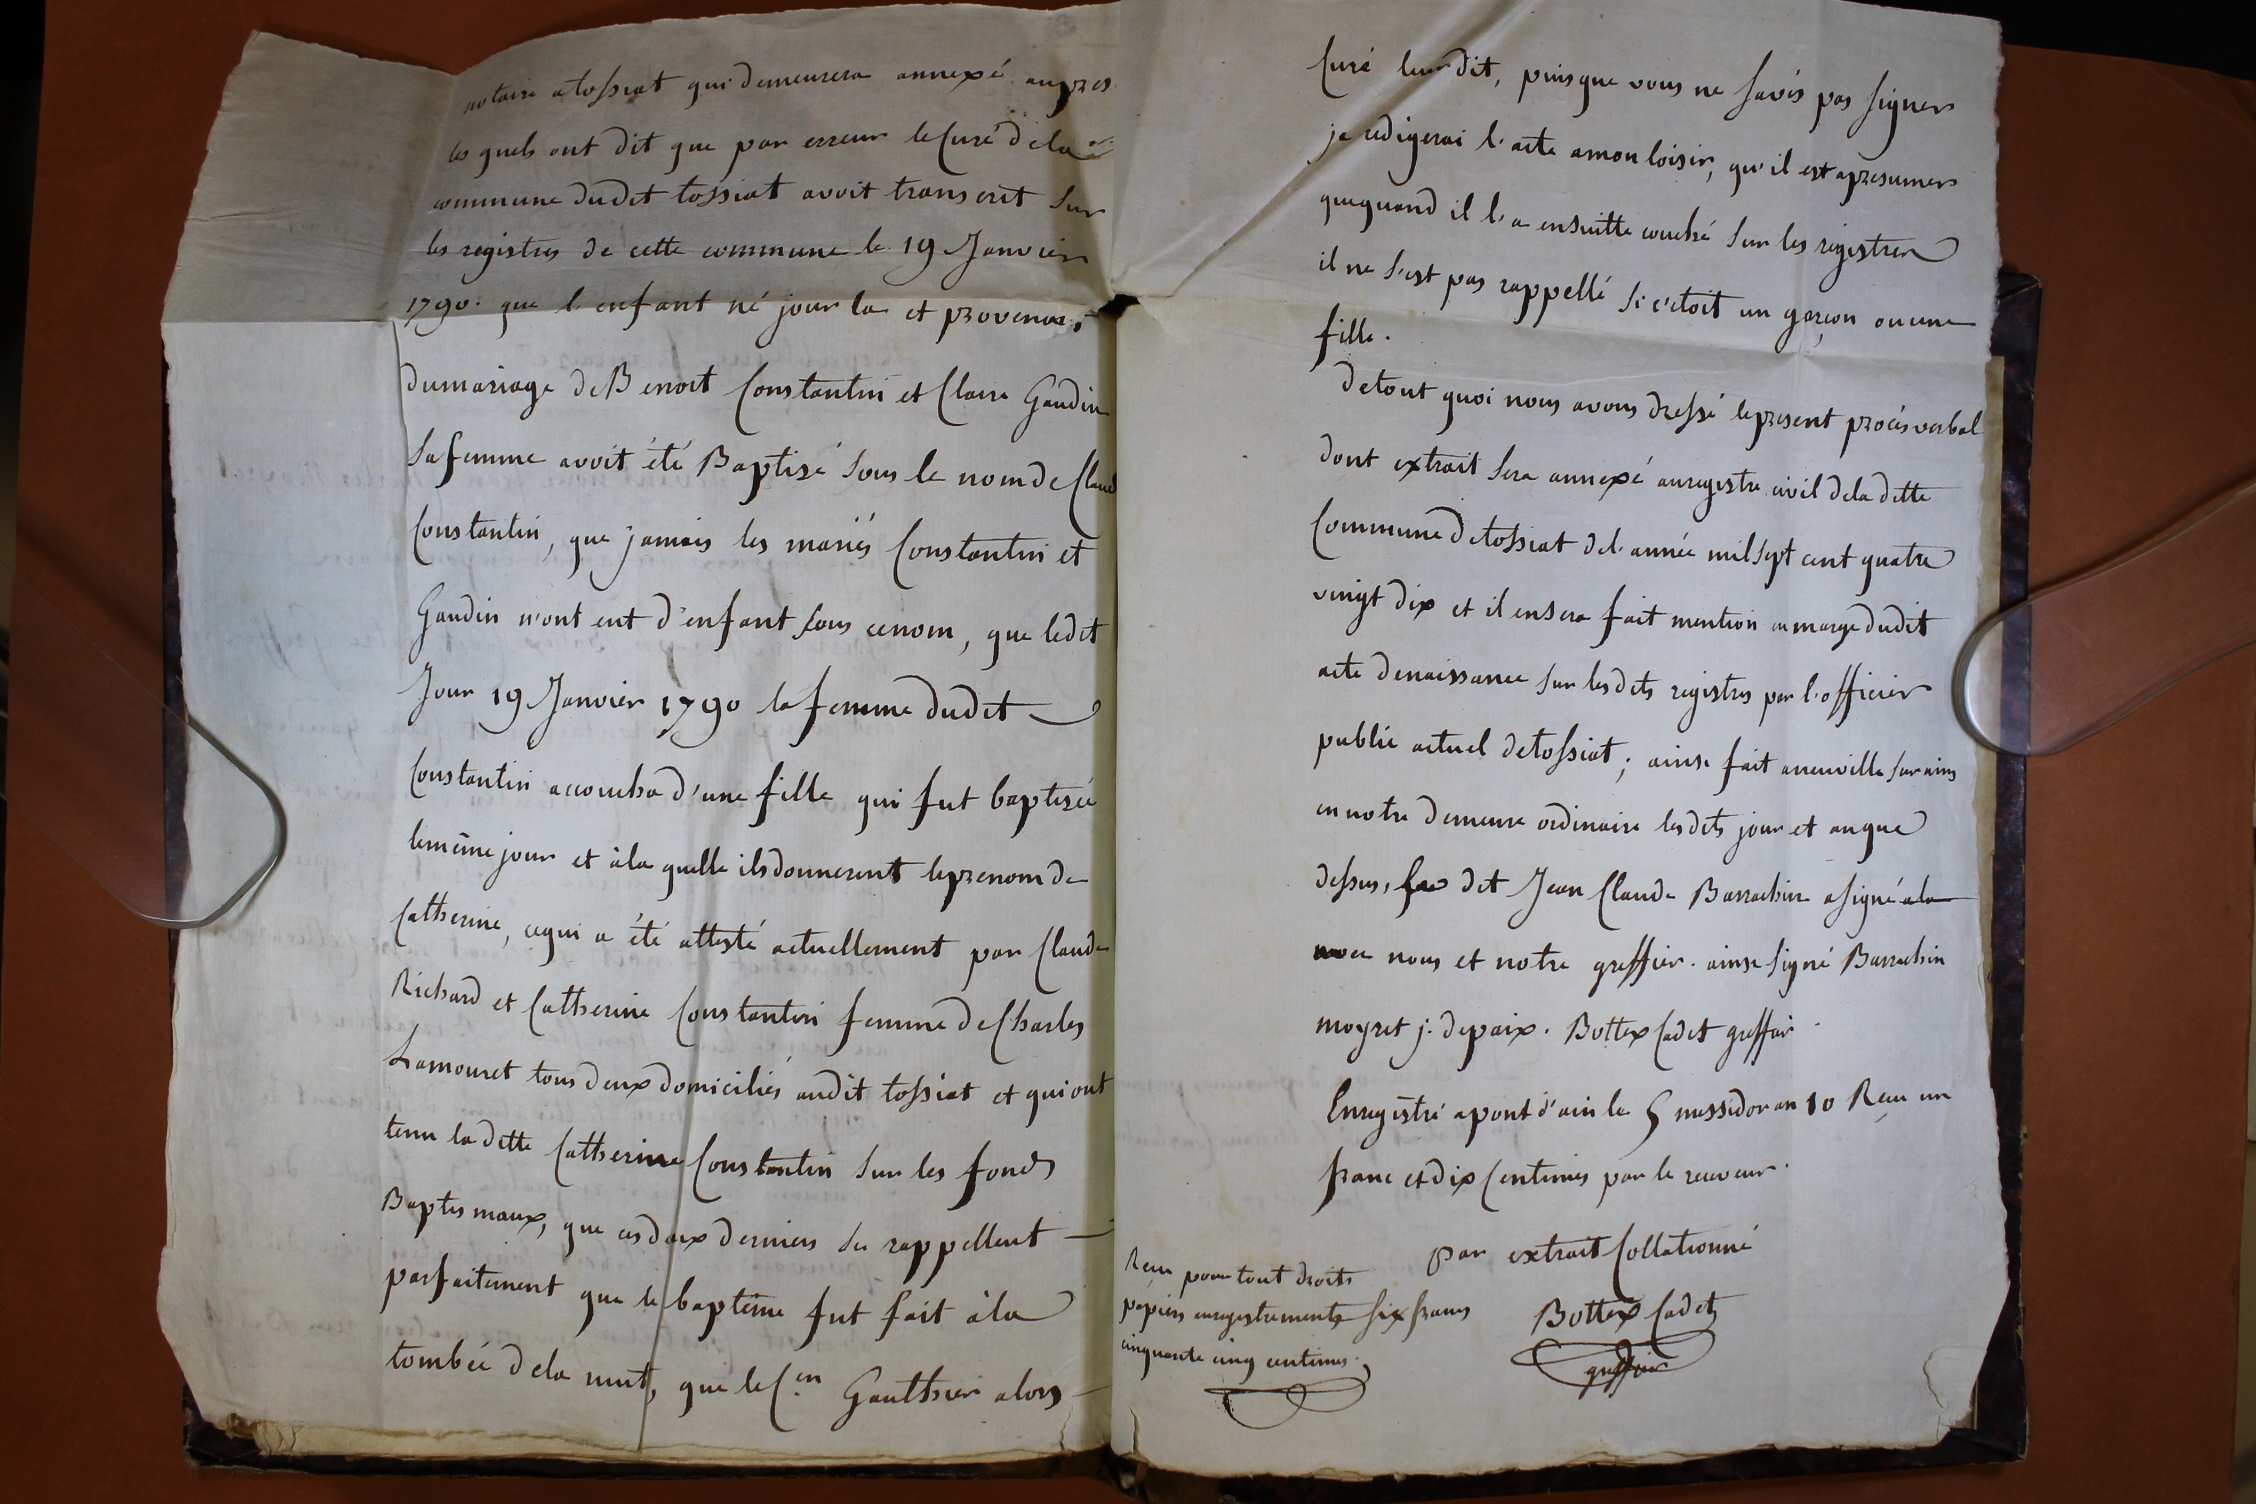 notaire a tossiat qui demeurera annexé au pres
les quels ont dit que par erreur le Curé de la
commune dudit tossiat avoit transcrit sur
les registres de cette commune le 19 Janvier
1790. que l'enfant né jour la et provenu,
du mariage de Benoit Constantin et Claire Gaudin
sa femme avoit été Baptisé sous le nom de Claud
Constantin, que jamais les mariés Constantin et
Gaudin n'ont eut d'enfant sous ce nom, que ledit
Jour 19 Janvier 1790 la femme dudit
Constantin accoucha d'une fille qui fut baptisée
le même jour et à la quelle ils donnerent le prenom de
Catherine, ce qui a été attesté actuellement par Claude
Richard et Catherine Constantin femme de Charles
Lamouret tous deux domiciliés audit tossiat et qui ont
tenu la ditte Catherine Constantin sur les fonds
Baptismaux, que ces deux derniers se rappellent
parfaitement que le baptême fut fait à la
tombée de la nuit, que le C.en Gauthier alors
Curé leur dit, puisque vous ne savés pas signer
je redigerai l'acte a mon loisir, qu'il est a presumer
que quand il l'a ensuitte couché sur les registres
il ne s'est pas rappellé si c'etoit un garçon ou une
fille.
de tout quoi nous avons dressé le present procès verbal
dont extrait sera annexé au registre civil de la ditte
Commune de tossiat de l'année mil sept cent quatre
vingt dix et il en sera fait mention en marge dudit
acte de naissance sur les dits registres par l'officier
public actuel de tossiat; ainsi fait a neuville sur ains
en notre demeure ordinaire les dits jour et an que
dessus, le dit Jean Claude Barrachin a signé a la
avec nous et notre greffier. ainsi signé Barrachin
moyret j. de paix. Bottex Cadet greffier.
Enregistré a pont d'ain le 5 messidor an 10 Reçu un
franc et dix Centimes par le receveur.
par extrait Collationné
Bottex Cadet
greffier
Reçu pour tout droits
papiers enregistrements six francs
cinquante cinq centimes.